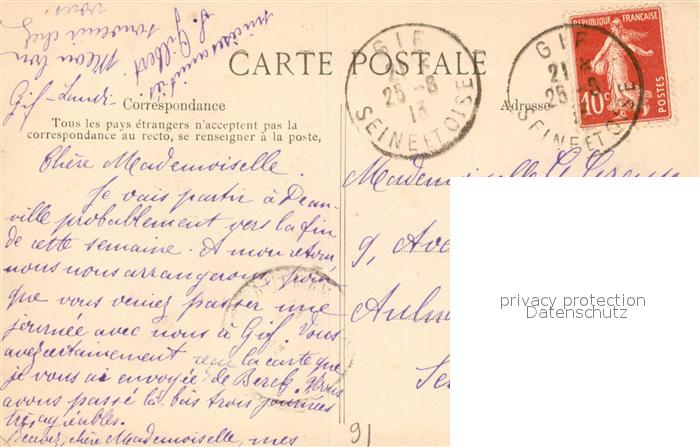 CARTE POSTALE
Correspondance
Tous les pays étrangers n'acceptent pas la
correspondance au recto, se renseigner à la poste,
Adresse
GIF
25 - 8
13
SEINE ET OISE
GIF
21
25 - 8
SEINE ET OISE
REPUBLIQUE FRANÇAISE
10c
POSTES
Gif - Lundi
Chère Mademoiselle
Je vais partir à Deau-
ville probablement vers la fin
de cette semaine. A mon retour,
nous nous arrangerons pour
que vous veniez passer une
journée avec nous à Gif. Vous
avez certainement reçu la carte que
je vous ai envoyée de Berck. Nous
avons passé là bas trois journées
très agréables.
Recevez, chère Mademoiselle, mes
sincères amitiés.
S. Gilbert.
Mon bon
souvenir chez
vous.
Mademoiselle G.
9, Ave
Auln
Se
91
privacy protection
Datenschutz